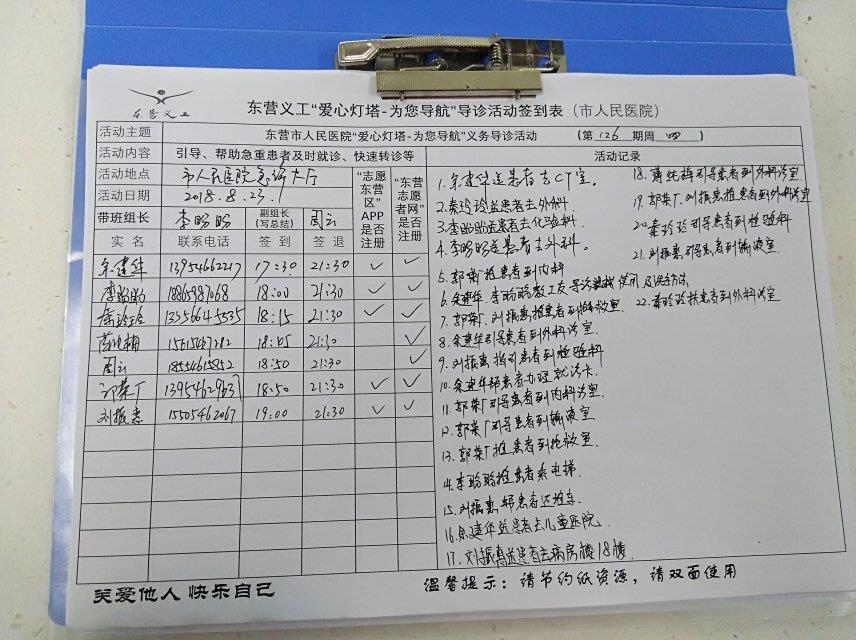 东营义工
东营义工“爱心灯塔-为您导航”导诊活动签到表（市人民医院）
活动主题 东营市人民医院“爱心灯塔-为您导航”义务导诊活动 （第126期周四）
活动内容 引导、帮助急重患者及时就诊、快速转诊等 活动记录
活动地点 市人民医院急诊大厅
活动日期 2018.8.23.
带班组长 李昐昐 副组长(写总结) 周云
“志愿东营区”APP是否注册
“东营志愿者网”是否注册
实名 联系电话 签到 签退
余建华 13954662217 17:30 21:30 ✓ ✓
李昐昐 18865987068 18:00 21:30 ✓ ✓
秦玲玲 13356645535 18:15 21:30 ✓ ✓
18:05 21:30 ✓
周云 18554615852 18:50 21:30 ✓
郭荣广 18:50 21:30 ✓ ✓
刘振惠 15505462067 19:00 21:30 ✓ ✓
1.余建华送患者去CT室。
2.秦玲玲送患者去外科
3.李昐昐送患者去化验科.
4.李昐昐送患者去外科。
5.郭荣广推患者到内科
6.余建华、李昐昐教工友导诊 使用及洗手方法
7.郭荣广.刘振惠推患者到抢救室.
8.余建华引导患者到外科诊室.
9.刘振惠指引患者到检验科
10.余建华帮患者办理就诊卡.
11.郭荣广引导患者到内科诊室.
12.郭荣广引导患者到输液室
13.郭荣广推患者到抢救室.
14.李昐昐推患者乘电梯
15.刘振惠帮患者还推车.
16.余建华送患者去儿童医院.
17.刘振惠送患者去病房楼18楼.
18. 引导患者到外科诊室
19.郭荣广.刘振惠推患者到外科诊室
20.秦玲玲引导患者到检验科
21.刘振惠引导患者到输液室
22.秦玲玲扶患者到外科诊室
关爱他人 快乐自己
温馨提示：请节约纸资源，请双面使用